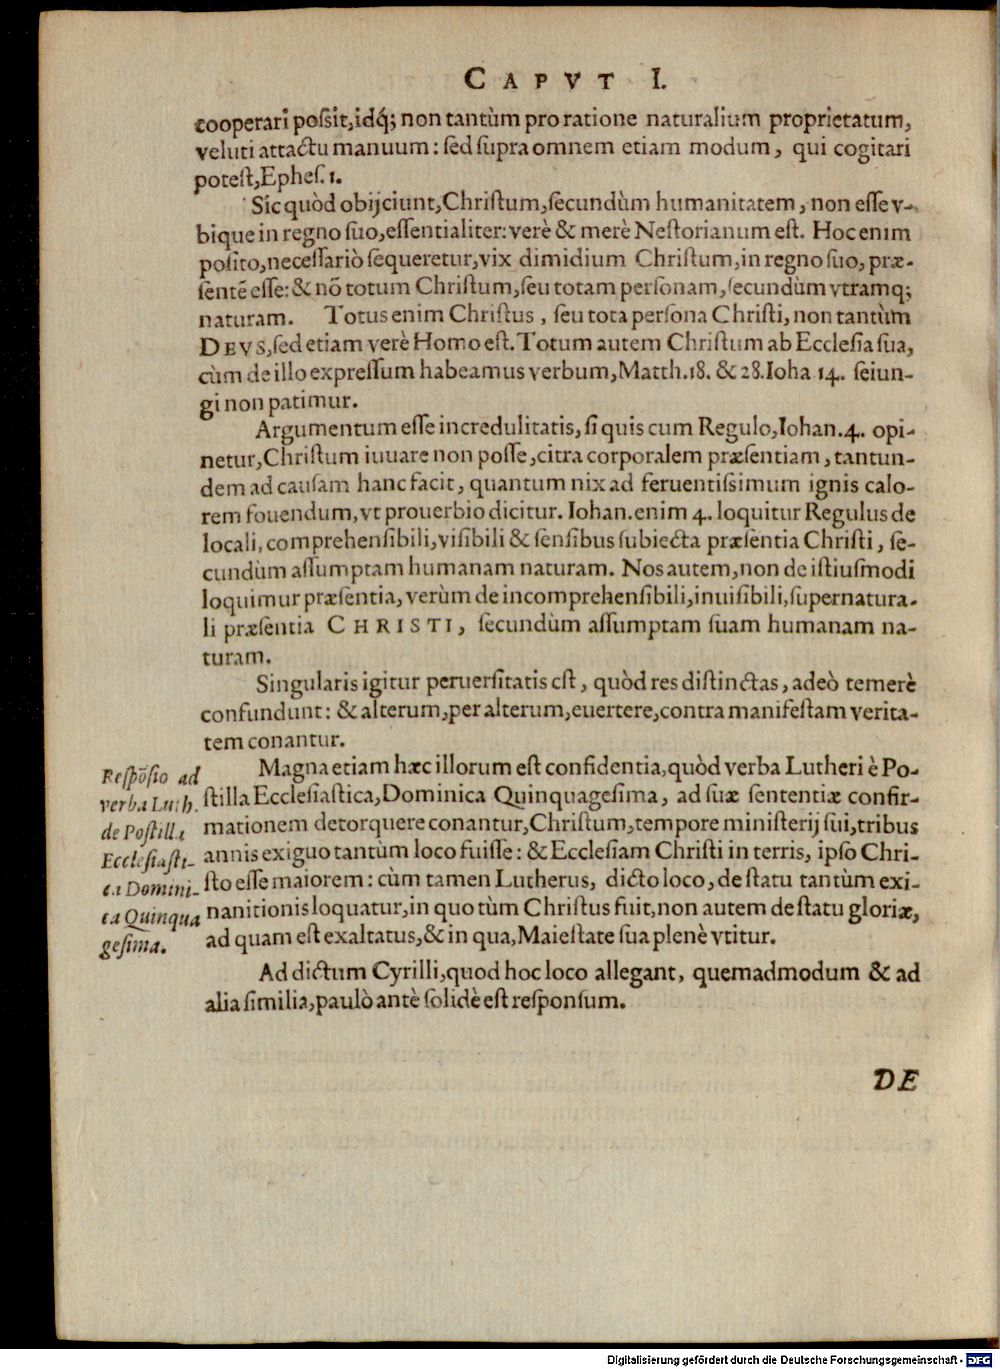 CAPVT I.
cooperari poſsit,idq́; non tantùm pro ratione naturalium proprietatum,
veluti attactu manuum: ſed ſupra omnem etiam modum, qui cogitari
poteſt,Epheſ.1.
Sic quòd obijciunt,Chriſtum,ſecundùm humanitatem, non eſſe v-
bique in regno ſuo,eſſentialiter: verè & merè Neſtorianum eſt. Hoc enim
poſito,neceſſariò ſequeretur,vix dimidium Chriſtum,in regno ſuo, præ-
ſentē eſſe: & nō totum Chriſtum,ſeu totam perſonam,ſecundùm vtramq;
naturam. Totus enim Chriſtus, ſeu tota perſona Chriſti, non tantùm
DEVS,ſed etiam verè Homo eſt. Totum autem Chriſtum ab Eccleſia ſua,
cùm de illo expreſſum habeamus verbum,Matth.18. & 28.Ioha 14. ſeiun-
gi non patimur.
Argumentum eſſe incredulitatis, ſi quis cum Regulo,Iohan.4. opi-
netur,Chriſtum iuuare non poſſe,citra corporalem præſentiam, tantun-
dem ad cauſam hanc facit, quantum nix ad feruentiſsimum ignis calo-
rem fouendum,vt prouerbio dicitur. Iohan.enim 4. loquitur Regulus de
locali, comprehenſibili,viſibili & ſenſibus ſubiecta præſentia Chriſti, ſe-
cundùm aſſumptam humanam naturam. Nos autem,non de iſtiuſmodi
loquimur præſentia, verùm de incomprehenſibili,inuiſibili,ſupernatura-
li præſentia CHRISTI, ſecundùm aſſumptam ſuam humanam na-
turam.
Singularis igitur peruerſitatis eſt, quòd res diſtinctas, adeò temerè
confundunt: & alterum,per alterum,euertere,contra manifeſtam verita-
tem conantur.
Reſpōſio ad
verba Luth.
de Poſtilla
Eccleſiaſti-
ca Domini-
ca Quinqua
geſima.
Magna etiam hæc illorum eſt confidentia,quòd verba Lutheri è Po-
ſtilla Eccleſiaſtica,Dominica Quinquageſima, ad ſuæ ſententiæ confir-
mationem detorquere conantur,Chriſtum,tempore miniſterij ſui,tribus
annis exiguo tantùm loco fuiſſe: & Eccleſiam Chriſti in terris, ipſo Chri-
ſto eſſe maiorem: cùm tamen Lutherus, dicto loco, de ſtatu tantùm exi-
nanitionis loquatur,in quo tùm Chriſtus fuit,non autem de ſtatu gloriæ,
ad quam eſt exaltatus,& in qua,Maieſtate ſua plenè vtitur.
Ad dictum Cyrilli,quod hoc loco allegant, quemadmodum & ad
alia ſimilia,paulò antè ſolidè eſt reſponſum.
DE
Digitalisierung gefördert durch die Deutsche Forschungsgemeinschaft - DFG